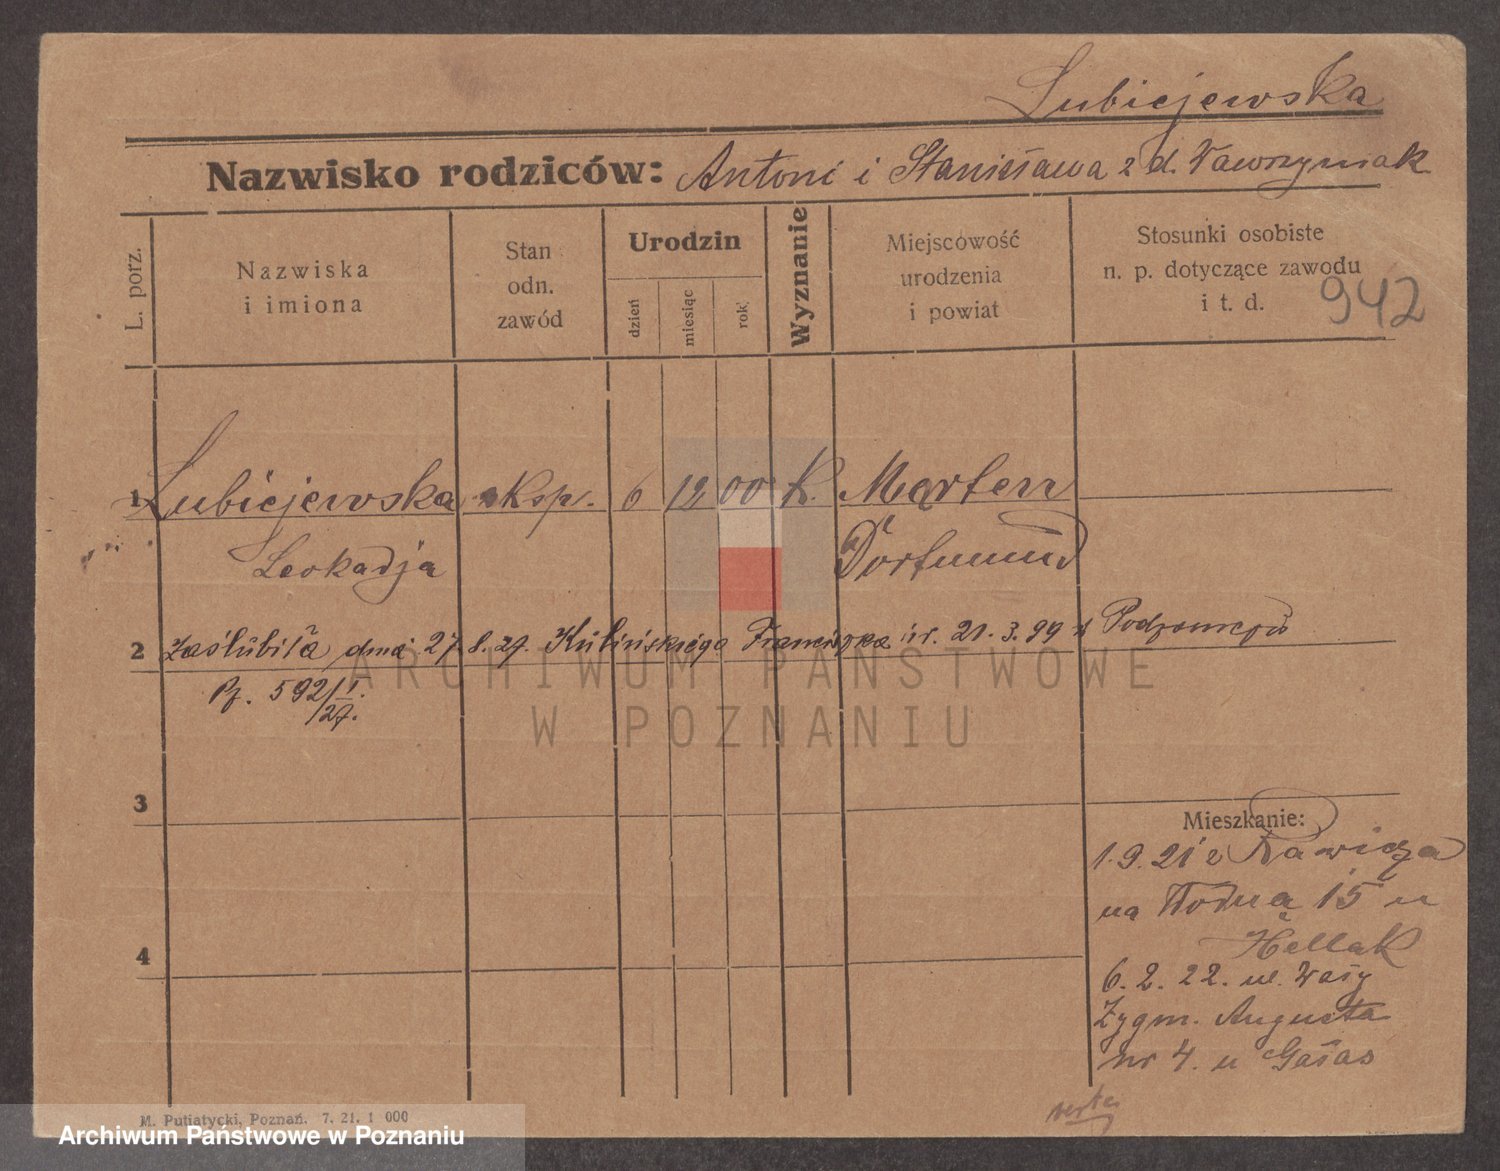 Lubiejewska
Nazwisko rodziców: Antoni i Stanisława z d. Wawrzyniak
L. porz.
Nazwiska
i imiona
Stan
odn.
zawód
Urodzin
dzień
miesiąc
rok
Wyznanie
Miejscowość
urodzenia
i powiat
Stosunki osobiste
n. p. dotyczące zawodu
i t. d.
942
1 Lubiejewska Eksp. 6 12 00 K. Marten
Leokadja Dortmund
2 zaślubiła dnia 27.8.27. Kubińskiego Franciszka ur. 21.3.99 w
592/I.
/27.
ARCHIWUM PAŃSTWOWE
W POZNANIU
3
4
Mieszkanie:
1.9.21 z Rawicza
na Wodną 15 u
Hellak
6.2.22. ul. Wały
Zygm. Augusta
nr 4. u Gałas
verte
M. Putiatycki, Poznań. 7. 21. 1 000
Archiwum Państwowe w Poznaniu